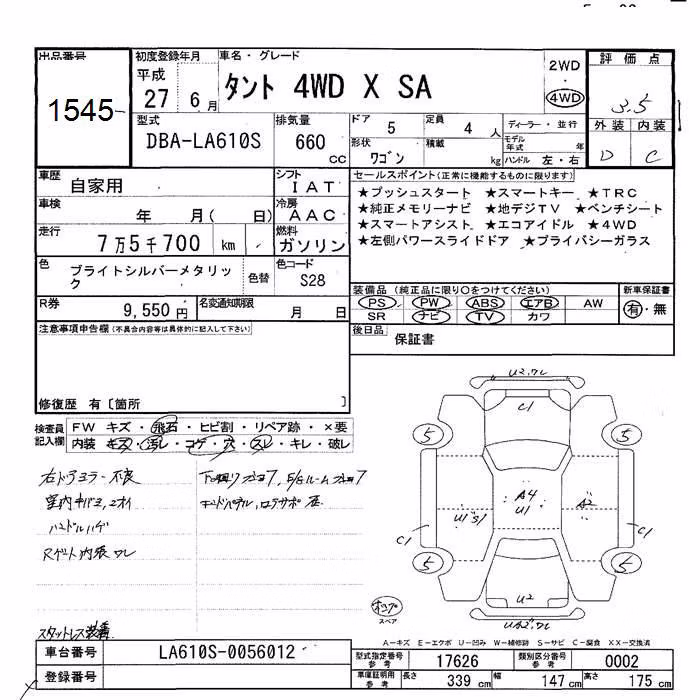 出品番号
1545
初度登録年月
平成
27 6月
車名・グレード
タント 4WD X SA
2WD
・
4WD
評価点
3.5
外装 内装
D C
型式
DBA-LA610S
排気量
660
cc
ドア 5
定員 4 人
形状
ワゴン
積載
kg
ディーラー・並行
モデル
年式 年
ハンドル 左・右
車歴
自家用
シフト
IAT
車検
年 月( 日)
冷房
AAC
走行
7万5千700 km
燃料
ガソリン
色
ブライトシルバーメタリッ
ク
色替
色コード
S28
R券
9,550円
名変通知期限
月 日
セールスポイント(正常に機能するものに限ります)
★プッシュスタート ★スマートキー ★TRC
★純正メモリーナビ ★地デジTV ★ベンチシート
★スマートアシスト ★エコアイドル ★4WD
★左側パワースライドドア ★プライバシーガラス
装備品 (純正品に限り○をつけてください)
PS PW ABS エアB AW
SR ナビ TV カワ
新車保証書
有・無
後日品
保証書
注意事項申告欄(不具合内容等は具体的に記入して下さい)
修復歴 有〔箇所 〕
検査員
記入欄
FW キズ・飛石・ヒビ割・リペア跡・×要
内装 キズ・汚レ・コゲ・穴・スレ・キレ・破レ
右ドアミラー不良
ハンドルハゲ
Rゲート内張ワレ
スタットレス装着
U2.ワレ
C1
5
5
A4
U1
U1 S1
A2
C1
C1
5
5
U2
スペア
A-キズ E-エクボ U-凹み W-補修跡 S-サビ C-腐食 XX-交換済
車台番号
LA610S-0056012
登録番号
型式指定番号
参考
17626
類別区分番号
参考
0002
車庫証明用
参考
長さ 339 cm
幅 147 cm
高さ 175 cm